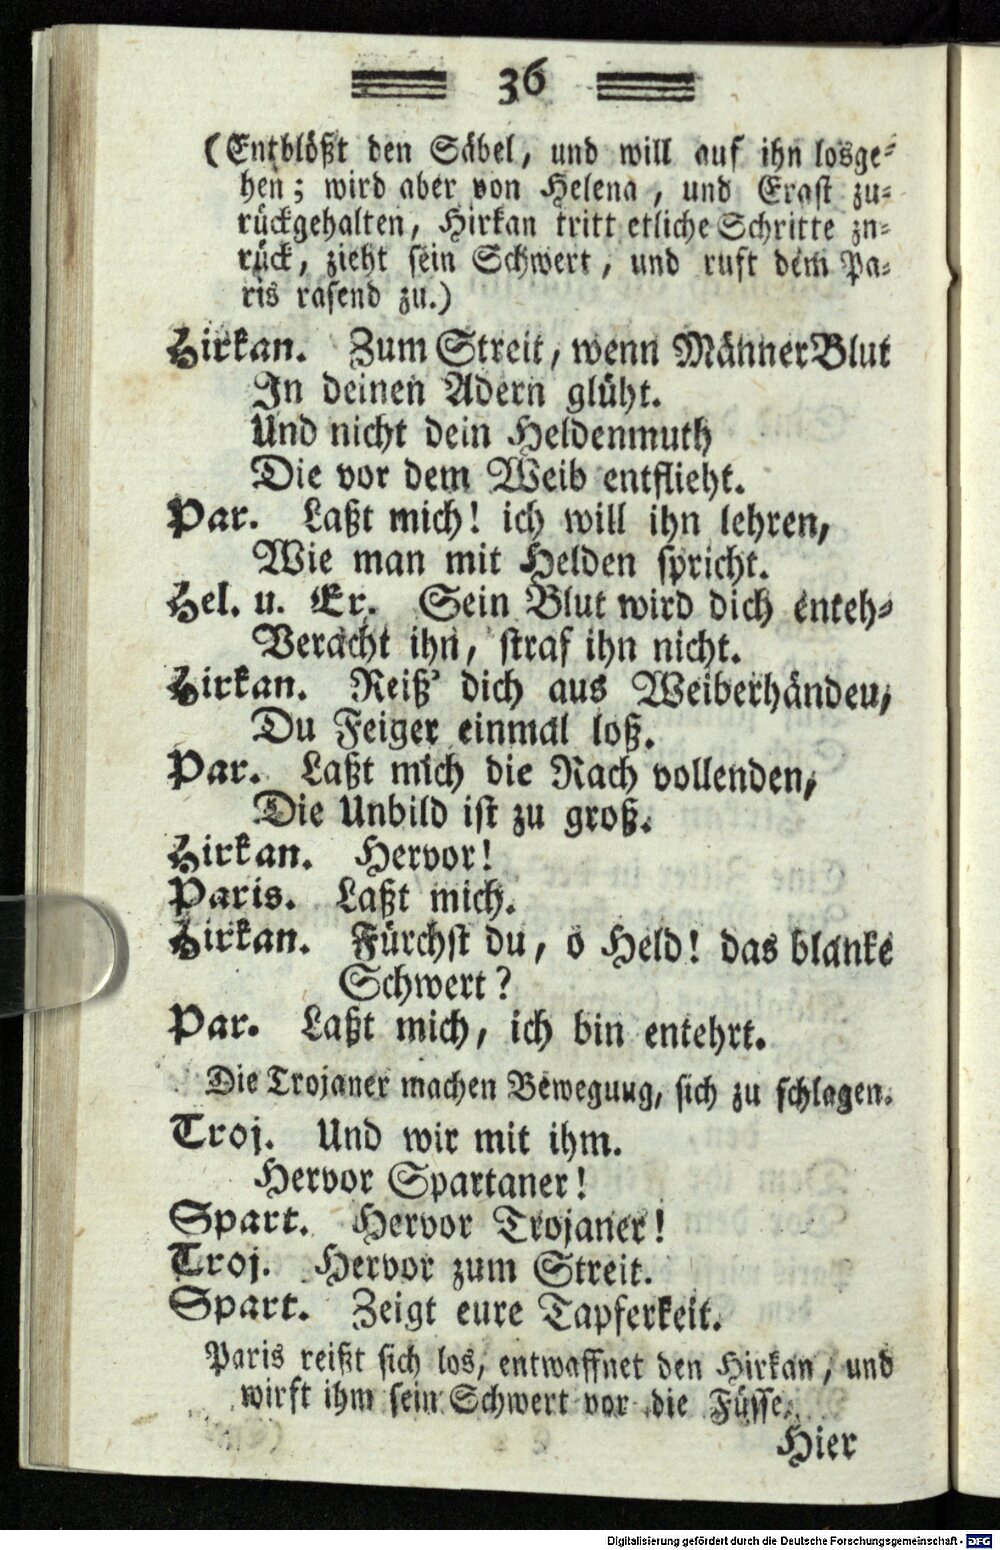 36
(Entblößt den Säbel, und will auf ihn losge-
hen; wird aber von Helena, und Erast zu-
rückgehalten, Hirkan tritt etliche Schritte zn-
rück, zieht sein Schwert, und ruft dem Pa-
ris rasend zu.)
Hirkan. Zum Streit, wenn MännerBlut
In deinen Adern glüht.
Und nicht dein Heldenmuth
Die vor dem Weib entflieht.
Par. Laßt mich! ich will ihn lehren,
Wie man mit Helden spricht.
Hel. u. Er. Sein Blut wird dich enteh-
Veracht ihn, straf ihn nicht.
Hirkan. Reiß' dich aus Weiberhändeu,
Du Feiger einmal loß.
Par. Laßt mich die Rach vollenden,
Die Unbild ist zu groß.
Hirkan. Hervor!
Paris. Laßt mich.
Hirkan. Fürchst du, o Held! das blanke
Schwert?
Par. Laßt mich, ich bin entehrt.
Die Trojaner machen Bewegung, sich zu schlagen.
Troj. Und wir mit ihm.
Hervor Spartaner!
Spart. Hervor Trojaner!
Troj. Hervor zum Streit.
Spart. Zeigt eure Tapferkeit.
Paris reißt sich los, entwaffnet den Hirkan, und
wirft ihm sein Schwert vor die Füsse.
Hier
Digitalisierung gefördert durch die Deutsche Forschungsgemeinschaft - DFG